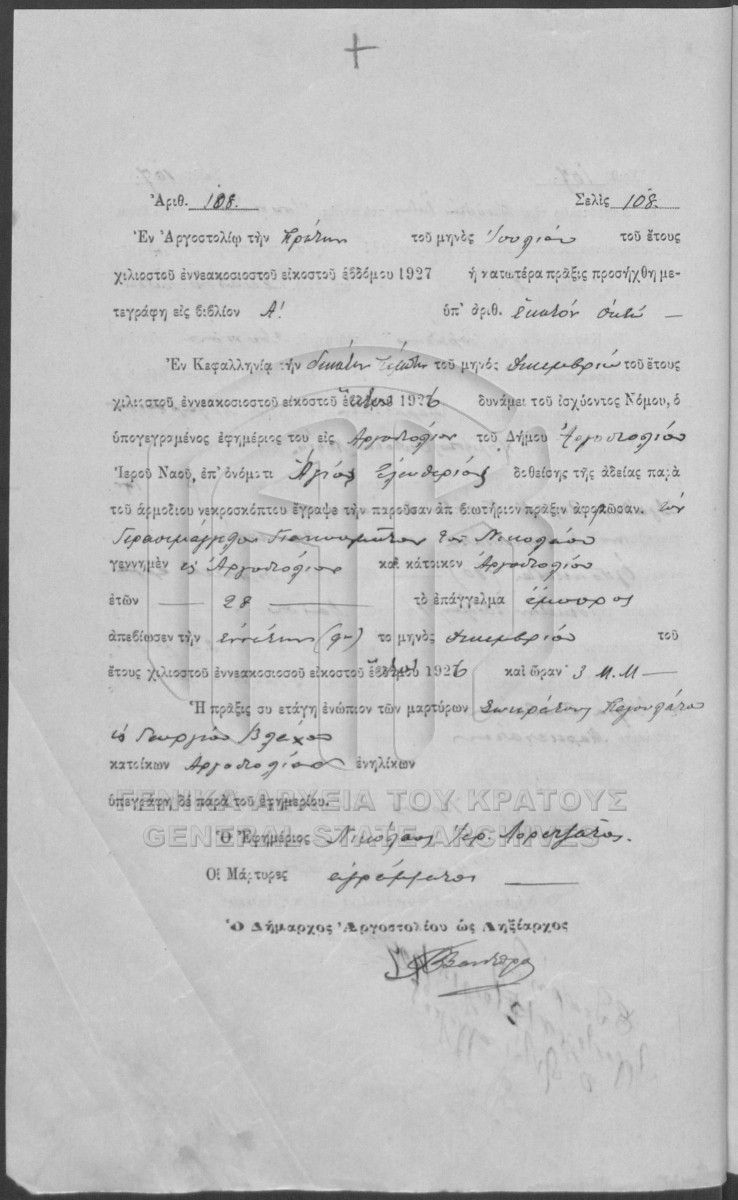 Ἀριθ. 108. Σελὶς 108.
Ἐν Ἀργοστολίῳ τὴν πρώτην τοῦ μηνὸς Ἰουλίου τοῦ ἔτους
χιλιοστοῦ ἐννεακοσιοστοῦ εἰκοστοῦ ἑβδόμου 1927 ἡ κατωτέρα πρᾶξις προσήχθη με-
τεγράφη εἰς βιβλίον Α! ὑπ' ἀριθ. ἑκατὸν ὀκτώ —
Ἐν Κεφαλληνίᾳ τὴν δεκάτην πέμπτην τοῦ μηνὸς Δεκεμβρίου τοῦ ἔτους
χιλιοστοῦ ἐννεακοσιοστοῦ εἰκοστοῦ ἕκτου 1926 δυνάμει τοῦ ἰσχύοντος Νόμου, ὁ
ὑπογεγραμένος ἐφημέριος του εἰς Ἀργοστόλιον τοῦ Δήμου Ἀργοστολίου
Ἱεροῦ Ναοῦ, ἐπ' ὀνόματι Ἁγίας Ἐλευθερίας δοθείσης τῆς ἀδείας παρὰ
τοῦ ἁρμοδιου νεκροσκόπτου ἔγραψε τὴν παροῦσαν ἀπ βιωτήριον πρᾶξιν ἀφορῶσαν τὸν
Γερασιμάγγελον τοῦ Νικολάου
γεννημὲν εἰς Ἀργοστόλιον καὶ κάτοικον Ἀργοστολίου
ἐτῶν — 28 — τὸ ἐπάγγελμα ἔμπορος
ἀπεβίωσεν τὴν ἐννάτην (9ην) το μηνὸς Δεκεμβρίου τοῦ
ἔτους χιλιοστοῦ ἐννεακοσιοσοῦ εἰκοστοῦ ἕκτου 1926 καὶ ὥραν 3 Μ.Μ —
Ἡ πρᾶξις συ ετάγη ἐνώπιον τῶν μαρτύρων Σωκράτους
ἐς Γεωργίου Βλάχου
κατοίκων Ἀργοστολίου ἐνηλίκων
ὑπεγράφη δέ παρὰ τοῦ ἐφημερίου.
ΓΕΝΙΚΑ ΑΡΧΕΙΑ ΤΟΥ ΚΡΑΤΟΥΣ
GENERAL STATE ARCHIVES
Ὁ Ἐφημέριος Νικόλαος Ἱερ. Λορεντζᾶτος.
Οἱ Μάρτυρες ἀγράμματοι —
Ὁ Δήμαρχος Ἀργοστολίου ὡς Ληξίαρχος